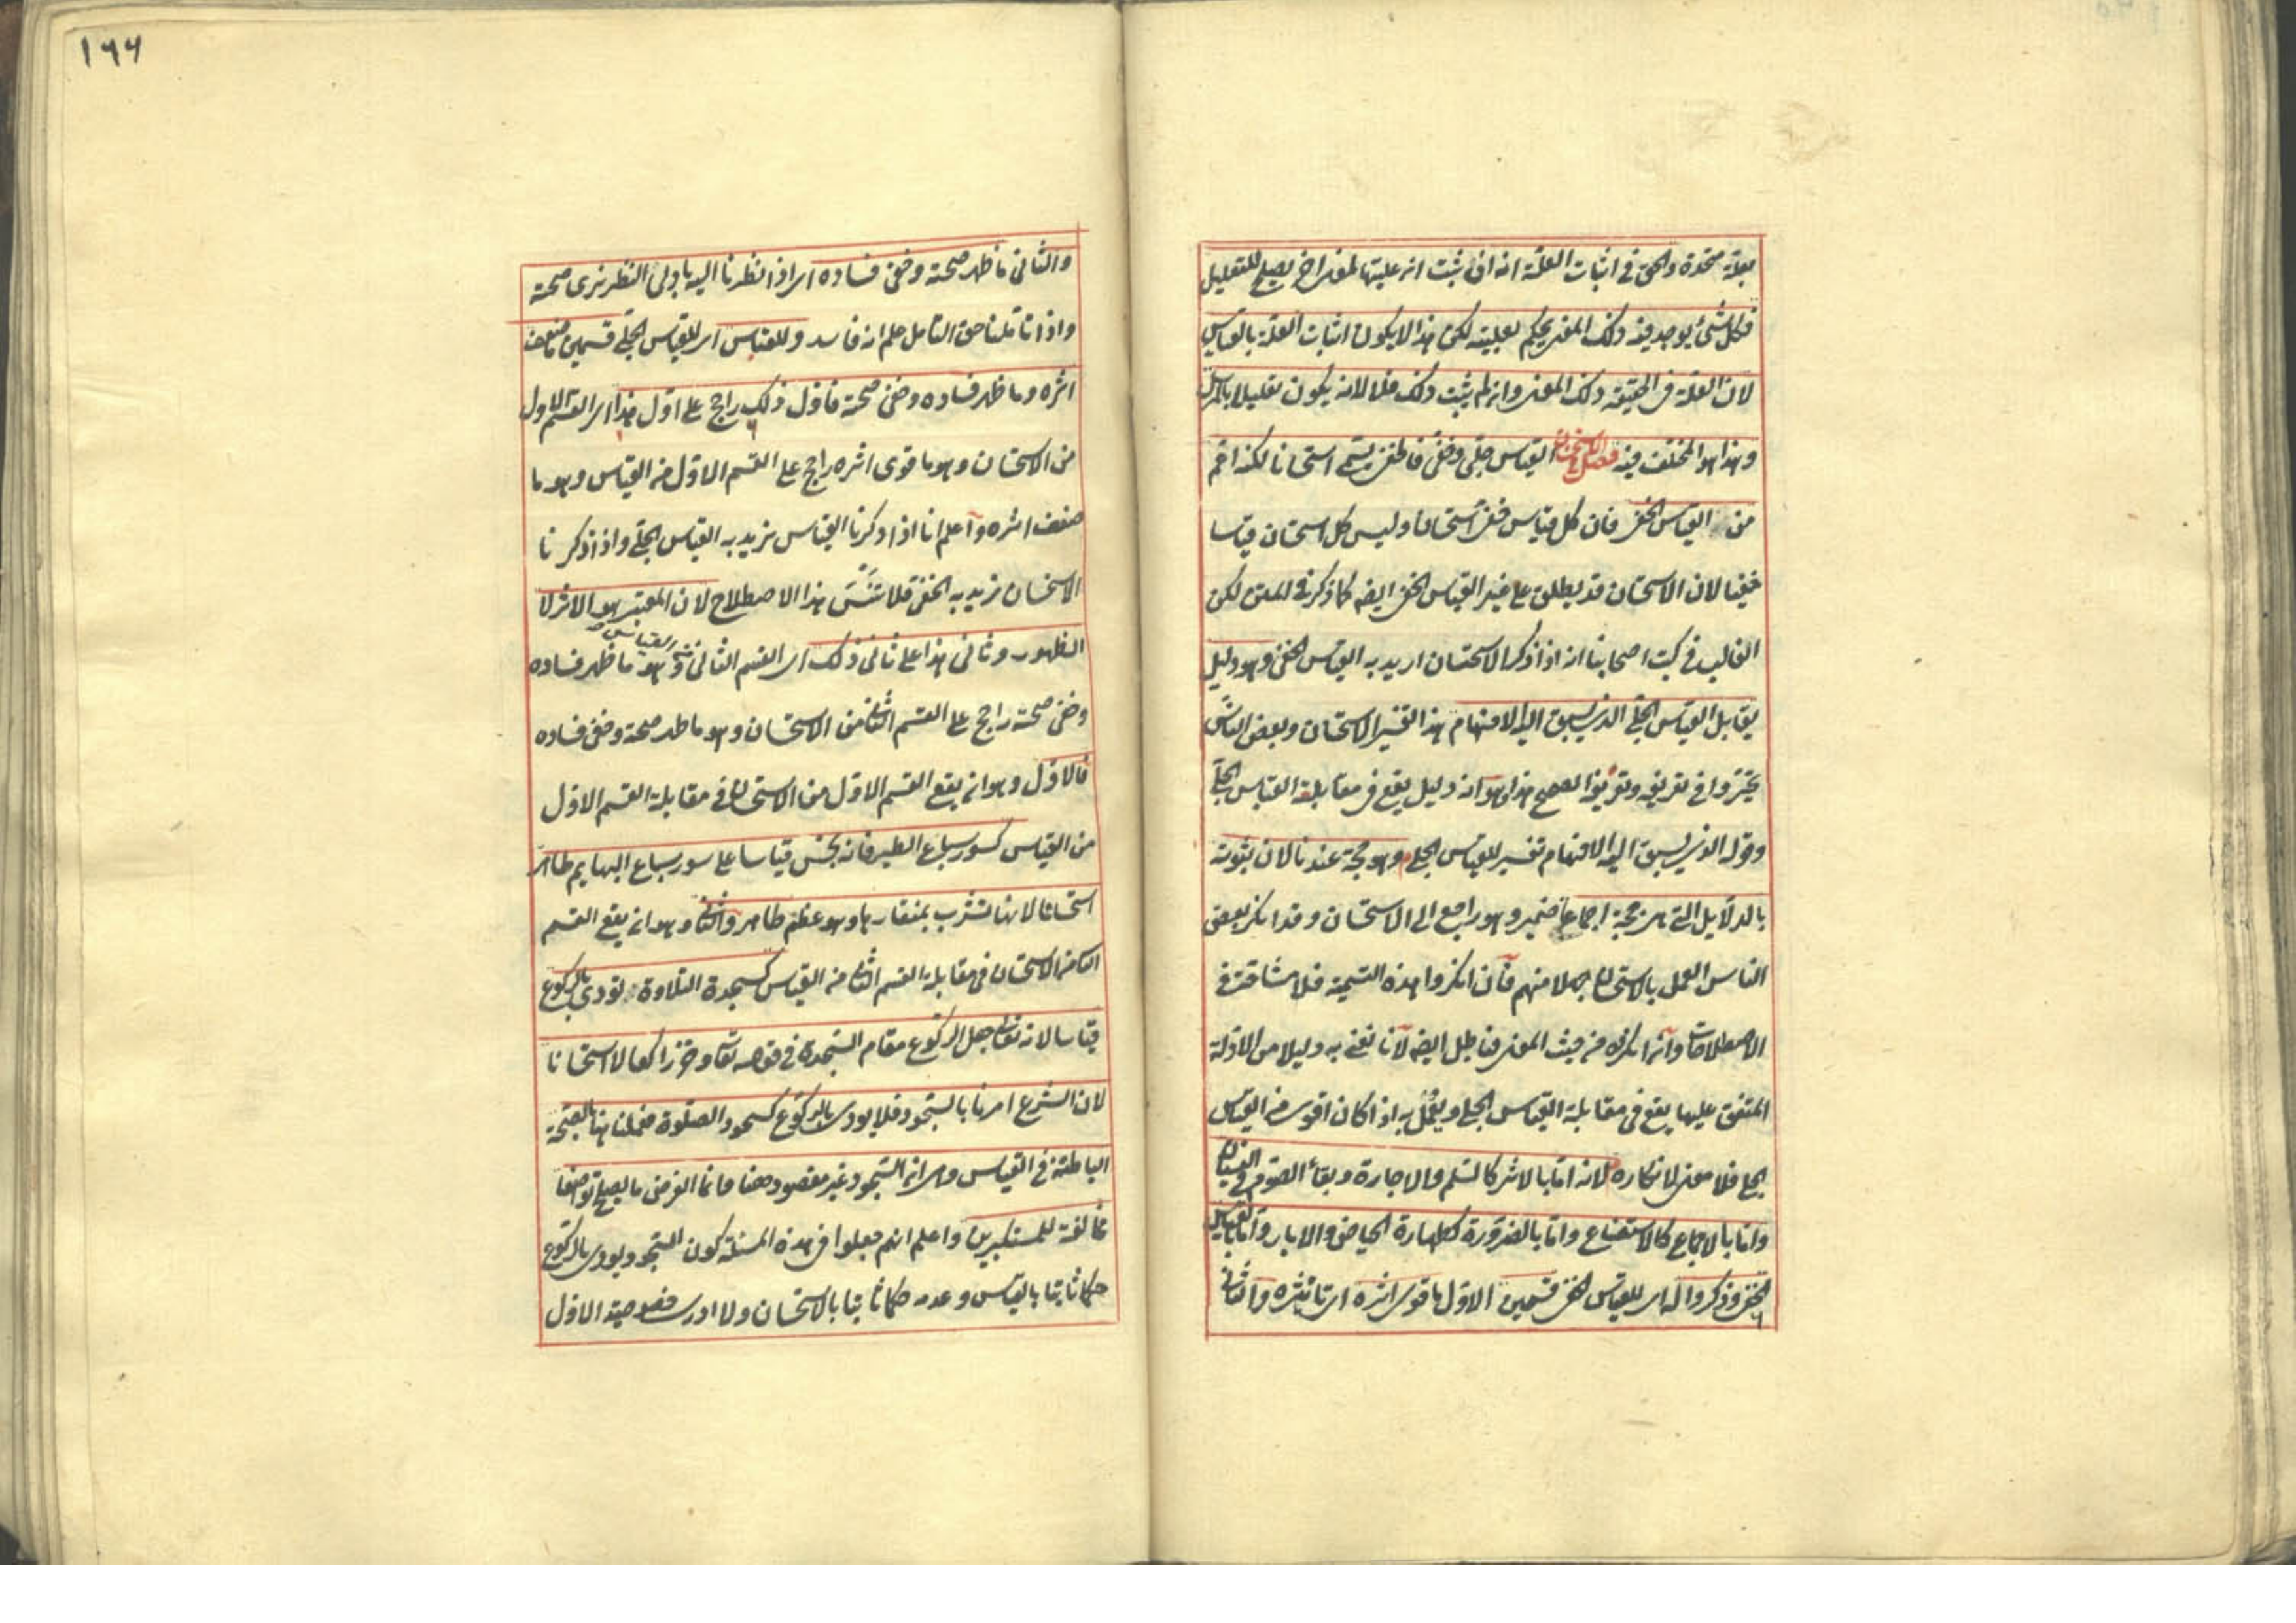 بعلة متحدة والحق في اثبات العلة انه ان ثبت ان عليتها لمعنى اخر يصلح للتعليل
فكل شئ يوجد فيه ذلك المعنى يحكم بعليته لكن هذا لا يكون اثبات العلة بالقياس
لان العلة في الحقيقة ذلك المعنى وان لم يثبت ذلك فلا لانه يكون تعليلا بالمرسل
وهذا هو المختلف فيه فصل الاستحسان القياس جلي وخفي فالخفي يسمى استحسانا لكنه اعم
من القياس الخفي فان كل قياس خفي استحسان وليس كل استحسان قياسا
خفيا لان الاستحسان قد يطلق على غير القياس الخفي ايضا كما ذكر في المتن لكن
الغالب في كتب اصحابنا انه اذا ذكر الاستحسان اريد به القياس الخفي وهو دليل
يقابل القياس الجلي الذي يسبق اليه الافهام هذا تفسير الاستحسان وبعض الناس
تحيروا في تعريفه وتعريفه الصحيح هذا وهو انه دليل يقع في مقابلة القياس الجلي
وقوله الذي يسبق اليه الافهام تفسير للقياس الجلي وهو حجة عندنا لان ثبوته
بالدلايل التي هي حجة اجماعا ضمير وهو راجع الى الاستحسان وقد انكر بعض
الناس العمل بالاستحسان جهلا منهم فان انكروا هذه التسمية فلا مشاحة في
الاصطلاحات وان انكروه من حيث المعنى فباطل ايضا لانا نعني به دليلا من الادلة
المتفق عليها يقع في مقابلة القياس الجلي ويعمل به اذا كان اقوى من القياس
الجلي فلا معنى لانكاره لانه اما بالاثر كالسلم والاجارة وبقاء الصوم في النسيان
واما بالاجماع كالاستصناع واما بالضرورة كطهارة الحياض والابار واما بالقياس
الخفي وذكروا له اى للقياس الخفي قسمين الاول ما قوى اثره اى تاثيره والثاني
١٦٦
والثاني ما ظهر صحته وخفي فساده اى اذا نظرنا اليه باولى النظر نرى صحته
واذا تاملنا حق التامل علم انه فاسد وللقياس اى للقياس الجلي قسمين ما ضعف
اثره وما ظهر فساده وخفي صحته فاول ذلك راجح على اول هذا اى القسم الاول
من الاستحسان وهو ما قوى اثره راجح على القسم الاول من القياس وهو ما
ضعف اثره واعلم انا اذا ذكرنا القياس نريد به القياس الجلي واذا ذكرنا
الاستحسان نريد به الخفي فلا تنس هذا الاصطلاح لان المعتبر هو الاثر لا
الظهور وثاني هذا على ثاني ذلك اى القسم الثاني من القياس وهو ما ظهر فساده
وخفي صحته راجح على القسم الثاني من الاستحسان وهو ما ظهر صحته وخفي فساده
فالاول وهو ان يقع القسم الاول من الاستحسان في مقابلة القسم الاول
من القياس كسور سباع الطير فانه نجس قياسا على سور سباع البهايم طاهر
استحسانا لانها تشرب بمنقارها وهو عظم طاهر والثاني وهو ان يقع القسم
الثاني من الاستحسان في مقابلة القسم الثاني من القياس كسجدة التلاوة تودى بالركوع
قياسا لانه تعالى جعل الركوع مقام السجدة في قوله تعالى وخر راكعا لا استحسانا
لان الشرع امرنا بالسجود فلا يودى بالركوع كسجود الصلوة فعملنا هنا بالصحة
الباطنة في القياس وهي ان السجود غير مقصود هنا وانما الغرض ما يصلح تواضعا
مخالفة للمستكبرين واعلم انهم جعلوا في هذه المسئلة كون السجود يودى بالركوع
حكما ثابتا بالقياس وعدمه حكما ثابتا بالاستحسان ولا ادرى خصوصية الاول